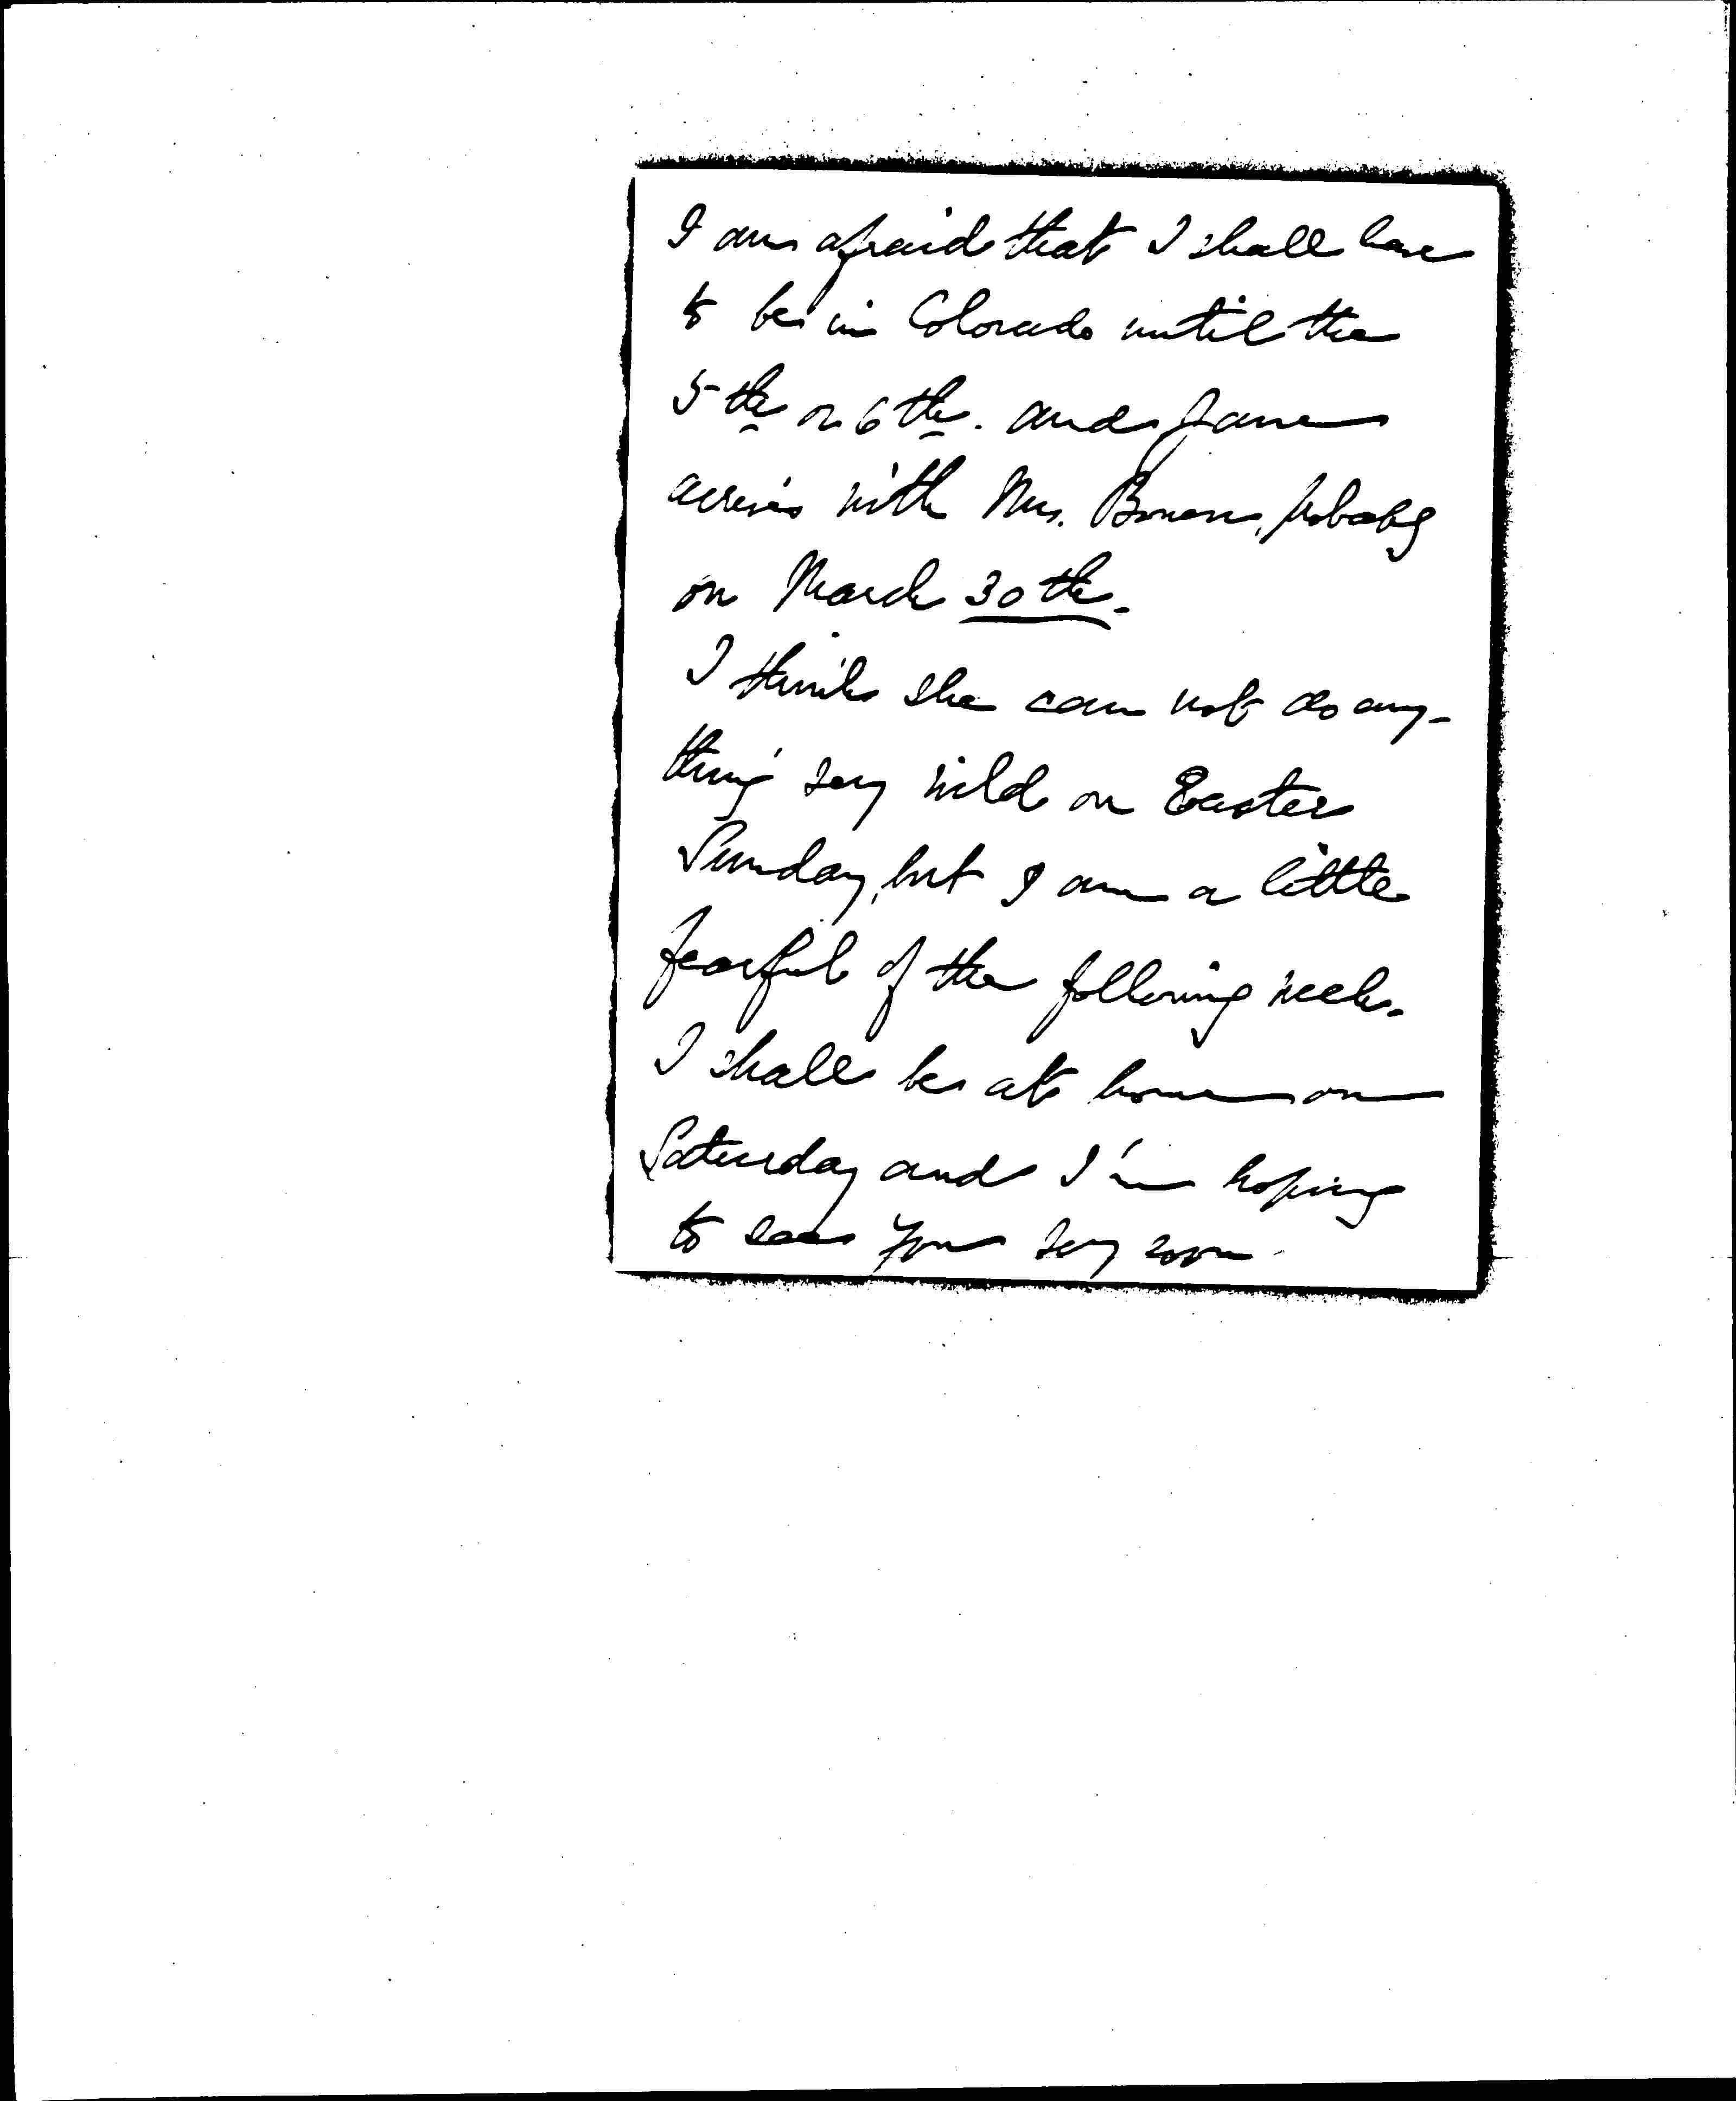 I am afraid that I shall have
to be in Colorado until the
5th or 6th. and Jane
arrives with Mrs. Bowen, probably
on March 30th.
I think she can not do any-
thing very wild on Easter
Sunday, but I am a little
fearful of the following week.
I shall be at home on
Saturday and I'm hoping
to see you very soon.